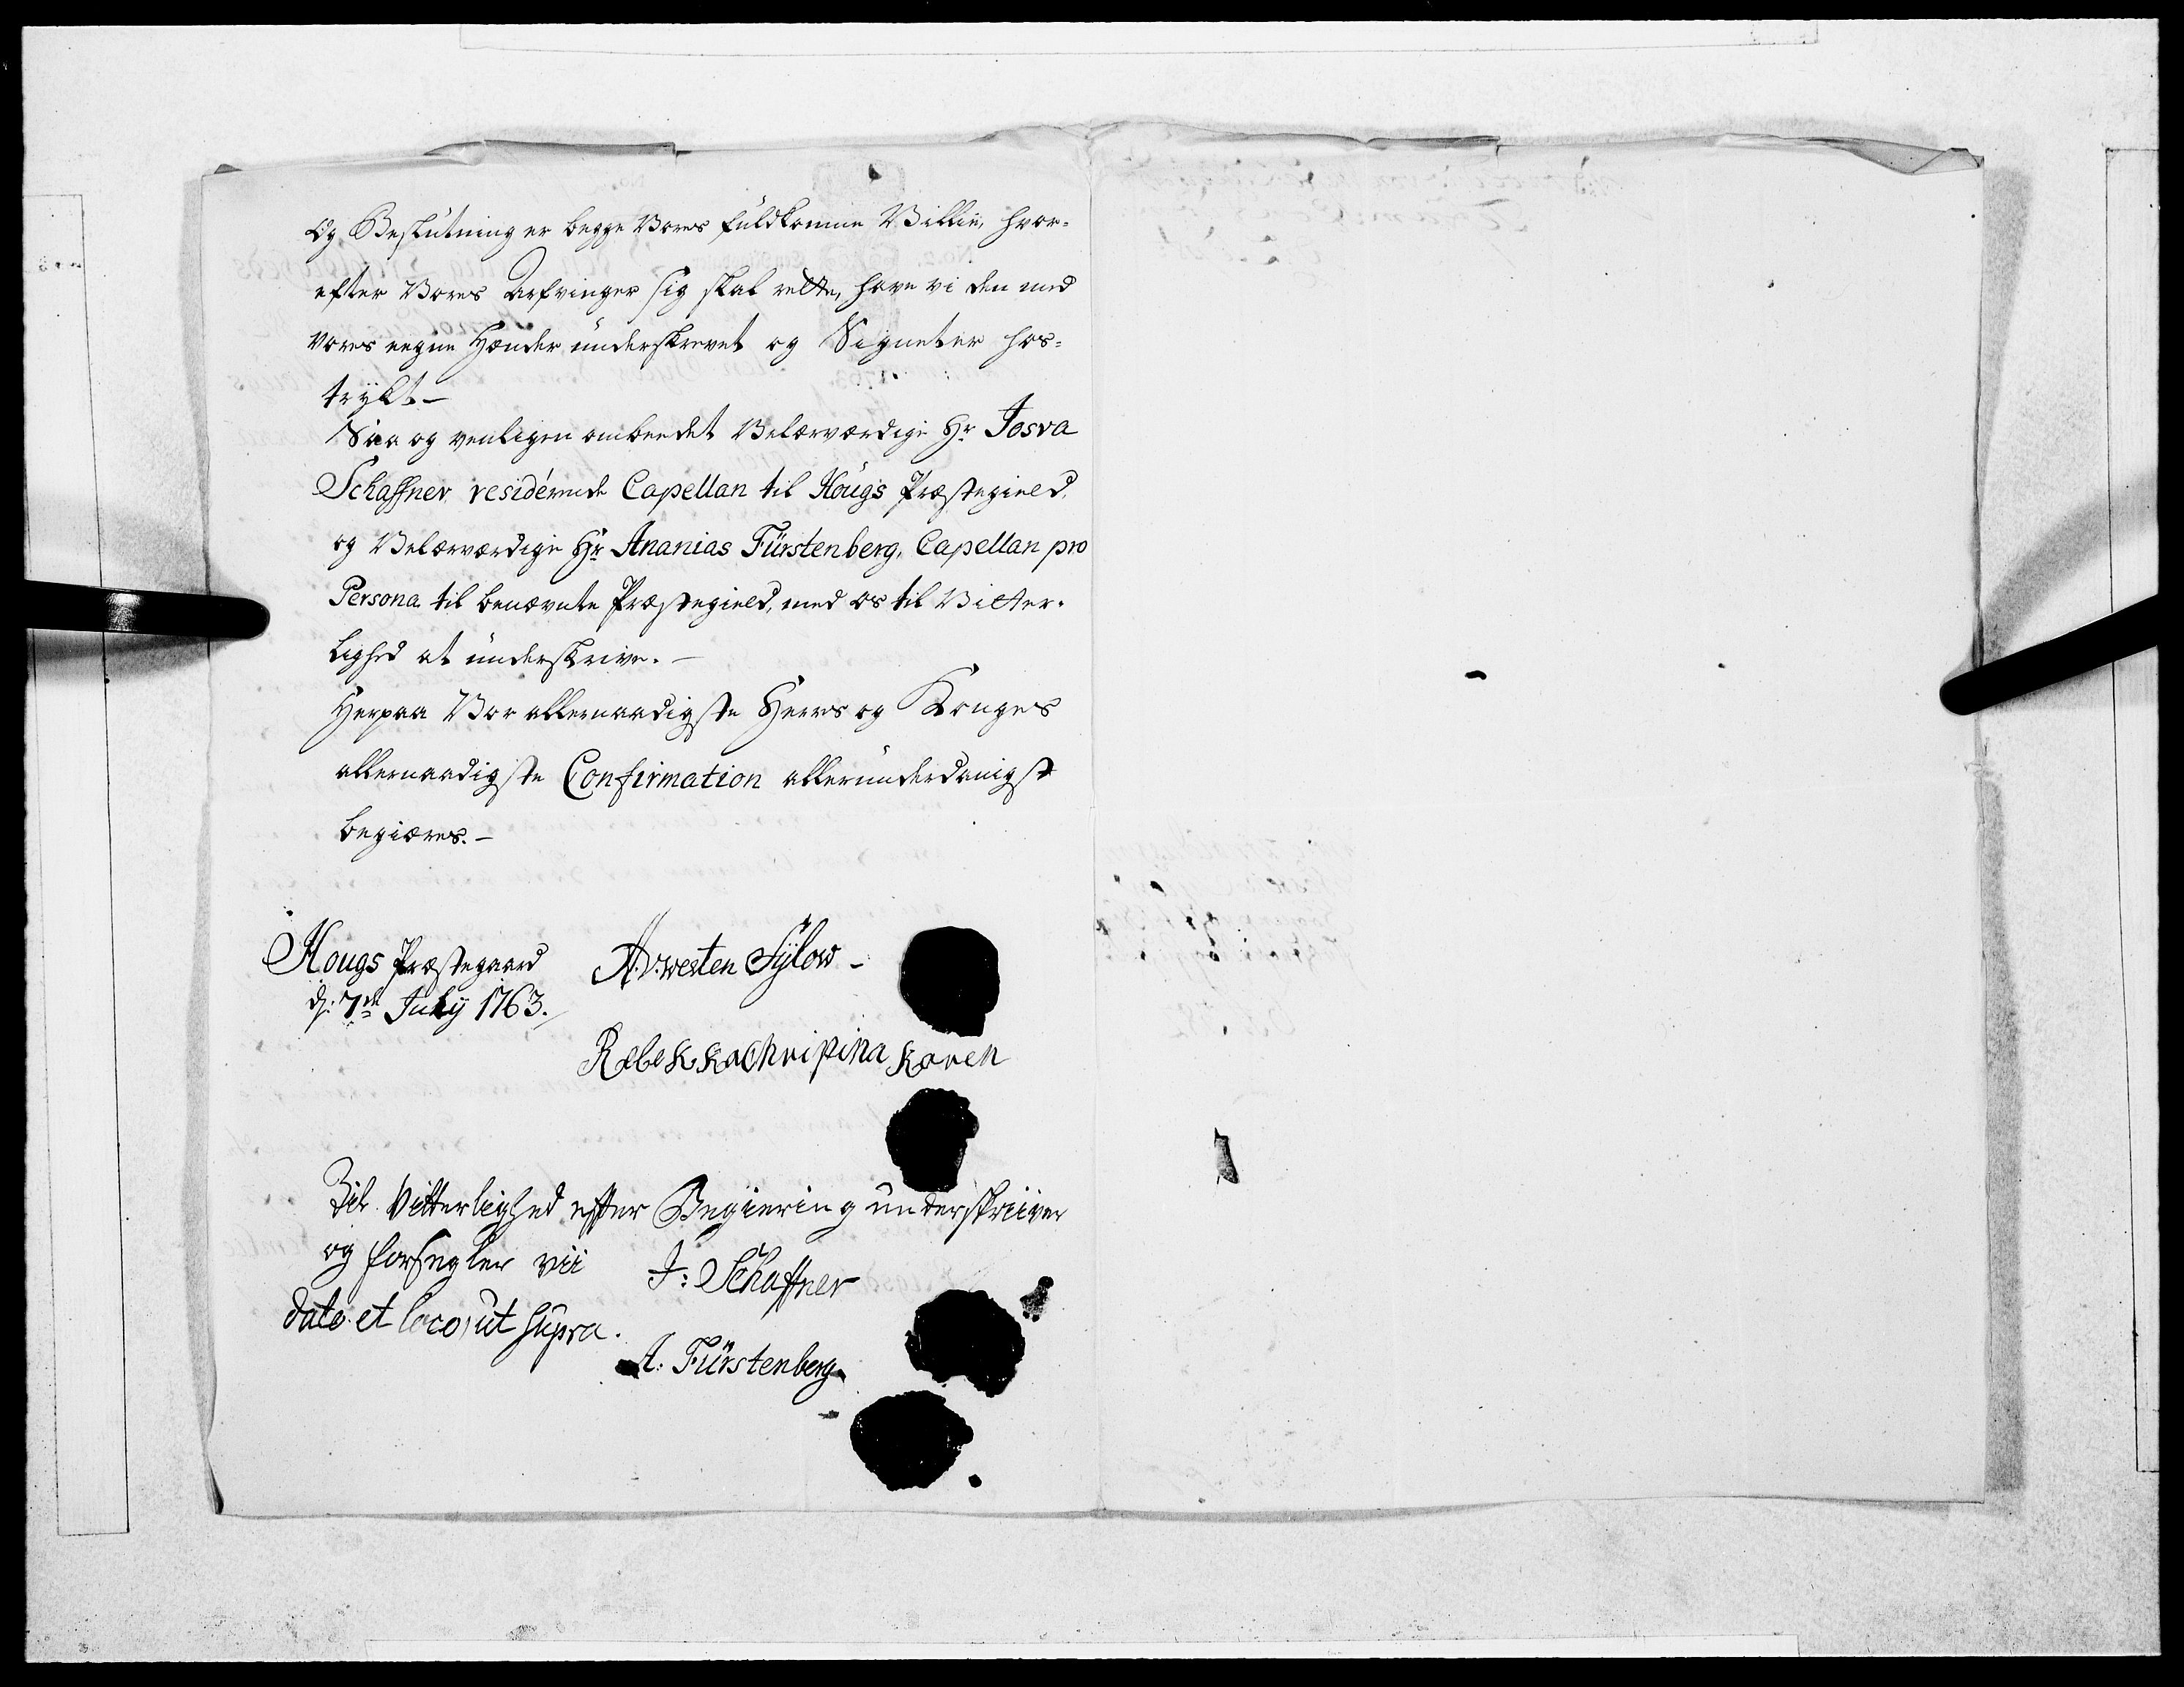 Og Beslutning er begge Vores fuldkomne Villie, hvor-
efter Vores Arfvinger sig skal rette, have vi den med
Vores eegne Hænder underskrevet og Signeter hos-
trykt-
Saa og venligen ombeedet Velærværdige Hr Josva
Schaffner residérende Capellan til Hougs Præstegield,
og Velærværdige Hr Ananias Fürstenberg, Capellan pro
Persona til benævnte Præstegield, med os til Vitter-
lighed at underskrive. -
Herpaa Vor allernaadigste Herres og Konges
allernaadigste Confirmation allerunderdanigst
begiæres. -
Hougs Præstegaard
d: 7de July 1763.
A. v: westen Sylow -
Rebekka Christina Koren
Til Vitterlighed efter Begiering underskriiver
og forsegler vii
J: Schaffner
dato et loco, ut supra.
A: Fürstenberg